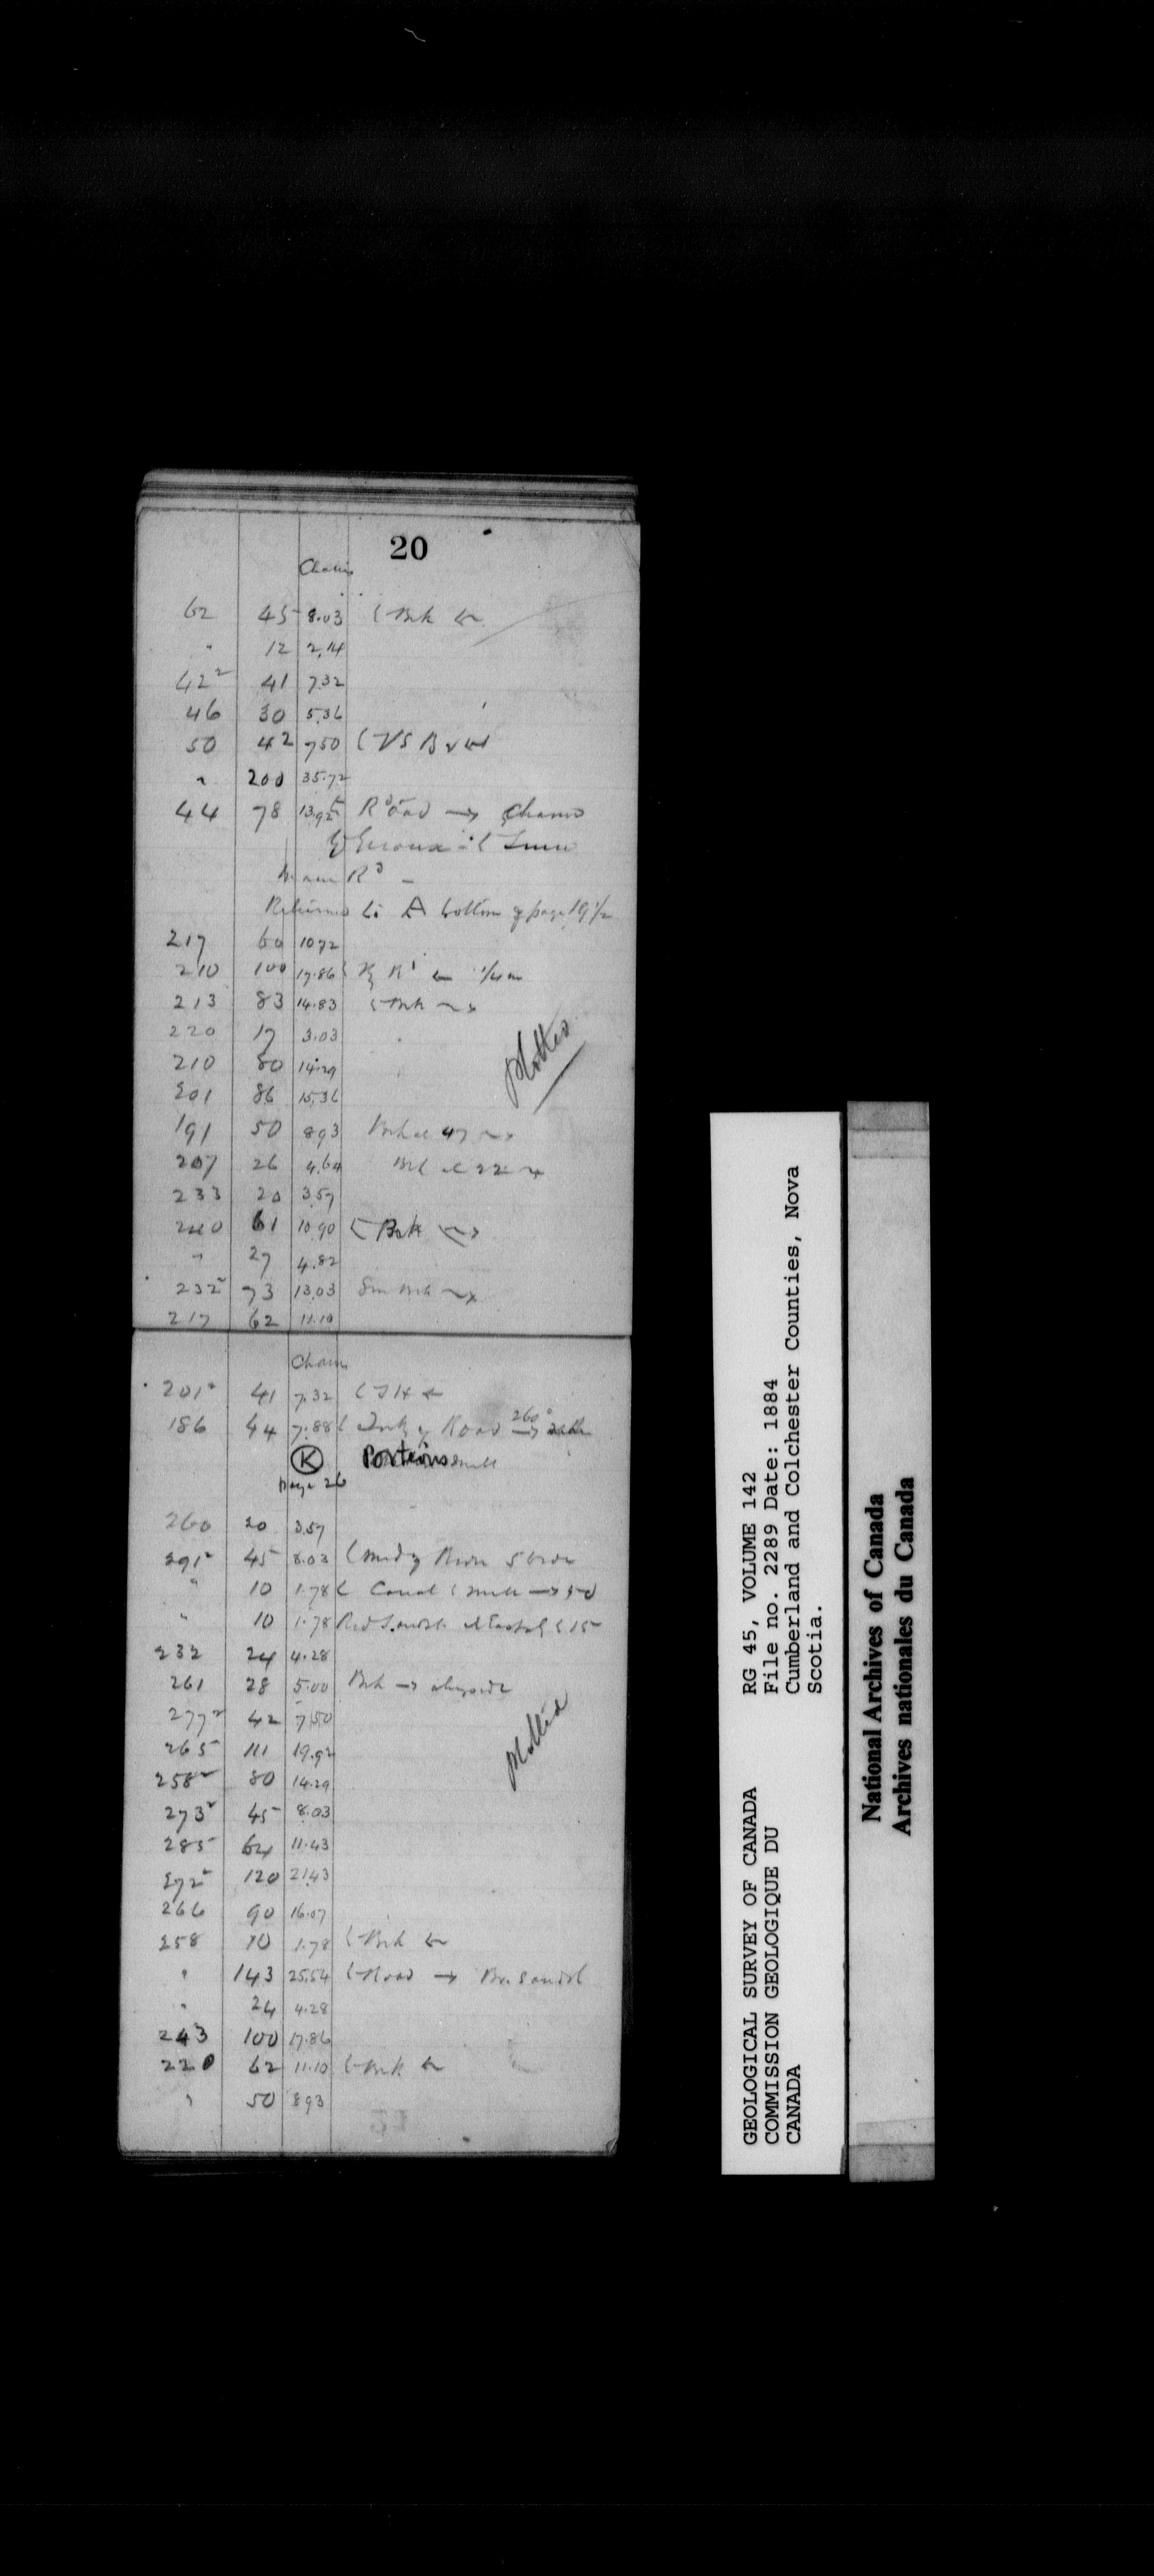 20
Chains
62 45 8.03 Brk
" 12 2.14
42² 41 7.32
46 30 5.36
50 42 7.50
" 200 35.72
44 78 13.92 Road → Chains
Main Rd
Returned to A bottom of page 19 1/2
217 60 10.72
210 100 17.86 ← 1/4 m
213 83 14.83 Brk
220 17 3.03
210 80 14.29
201 86 15.36
191 50 8.93 Brk at 47
207 26 4.64 Brk at 22
233 20 3.57
240 61 10.90 Brk
" 27 4.82
232² 73 13.03 Sm Brk
217 62 11.10
Plotted
Chains
201² 41 7.32 ←
186 44 7.88 Road 260° →
K Porteous mill
page 26
260 20 3.57
291² 45 8.03
" 10 1.78 Canal mill → 50
" 10 1.78 Red Sandst
232 24 4.28
261 28 5.00 Brk → alongside
277² 42 7.50
265 111 19.92
258² 80 14.29
273² 45 8.03
285 64 11.43
272² 120 21.43
266 90 16.07
258 10 1.78 Brk ←
" 143 25.54 Road → Br. Sandst
" 24 4.28
243 100 17.86
220 62 11.10 Brk ←
" 50 8.93
Plotted
GEOLOGICAL SURVEY OF CANADA
COMMISSION GEOLOGIQUE DU
CANADA
RG 45, VOLUME 142
File no. 2289 Date: 1884
Cumberland and Colchester Counties, Nova
Scotia.
National Archives of Canada
Archives nationales du Canada